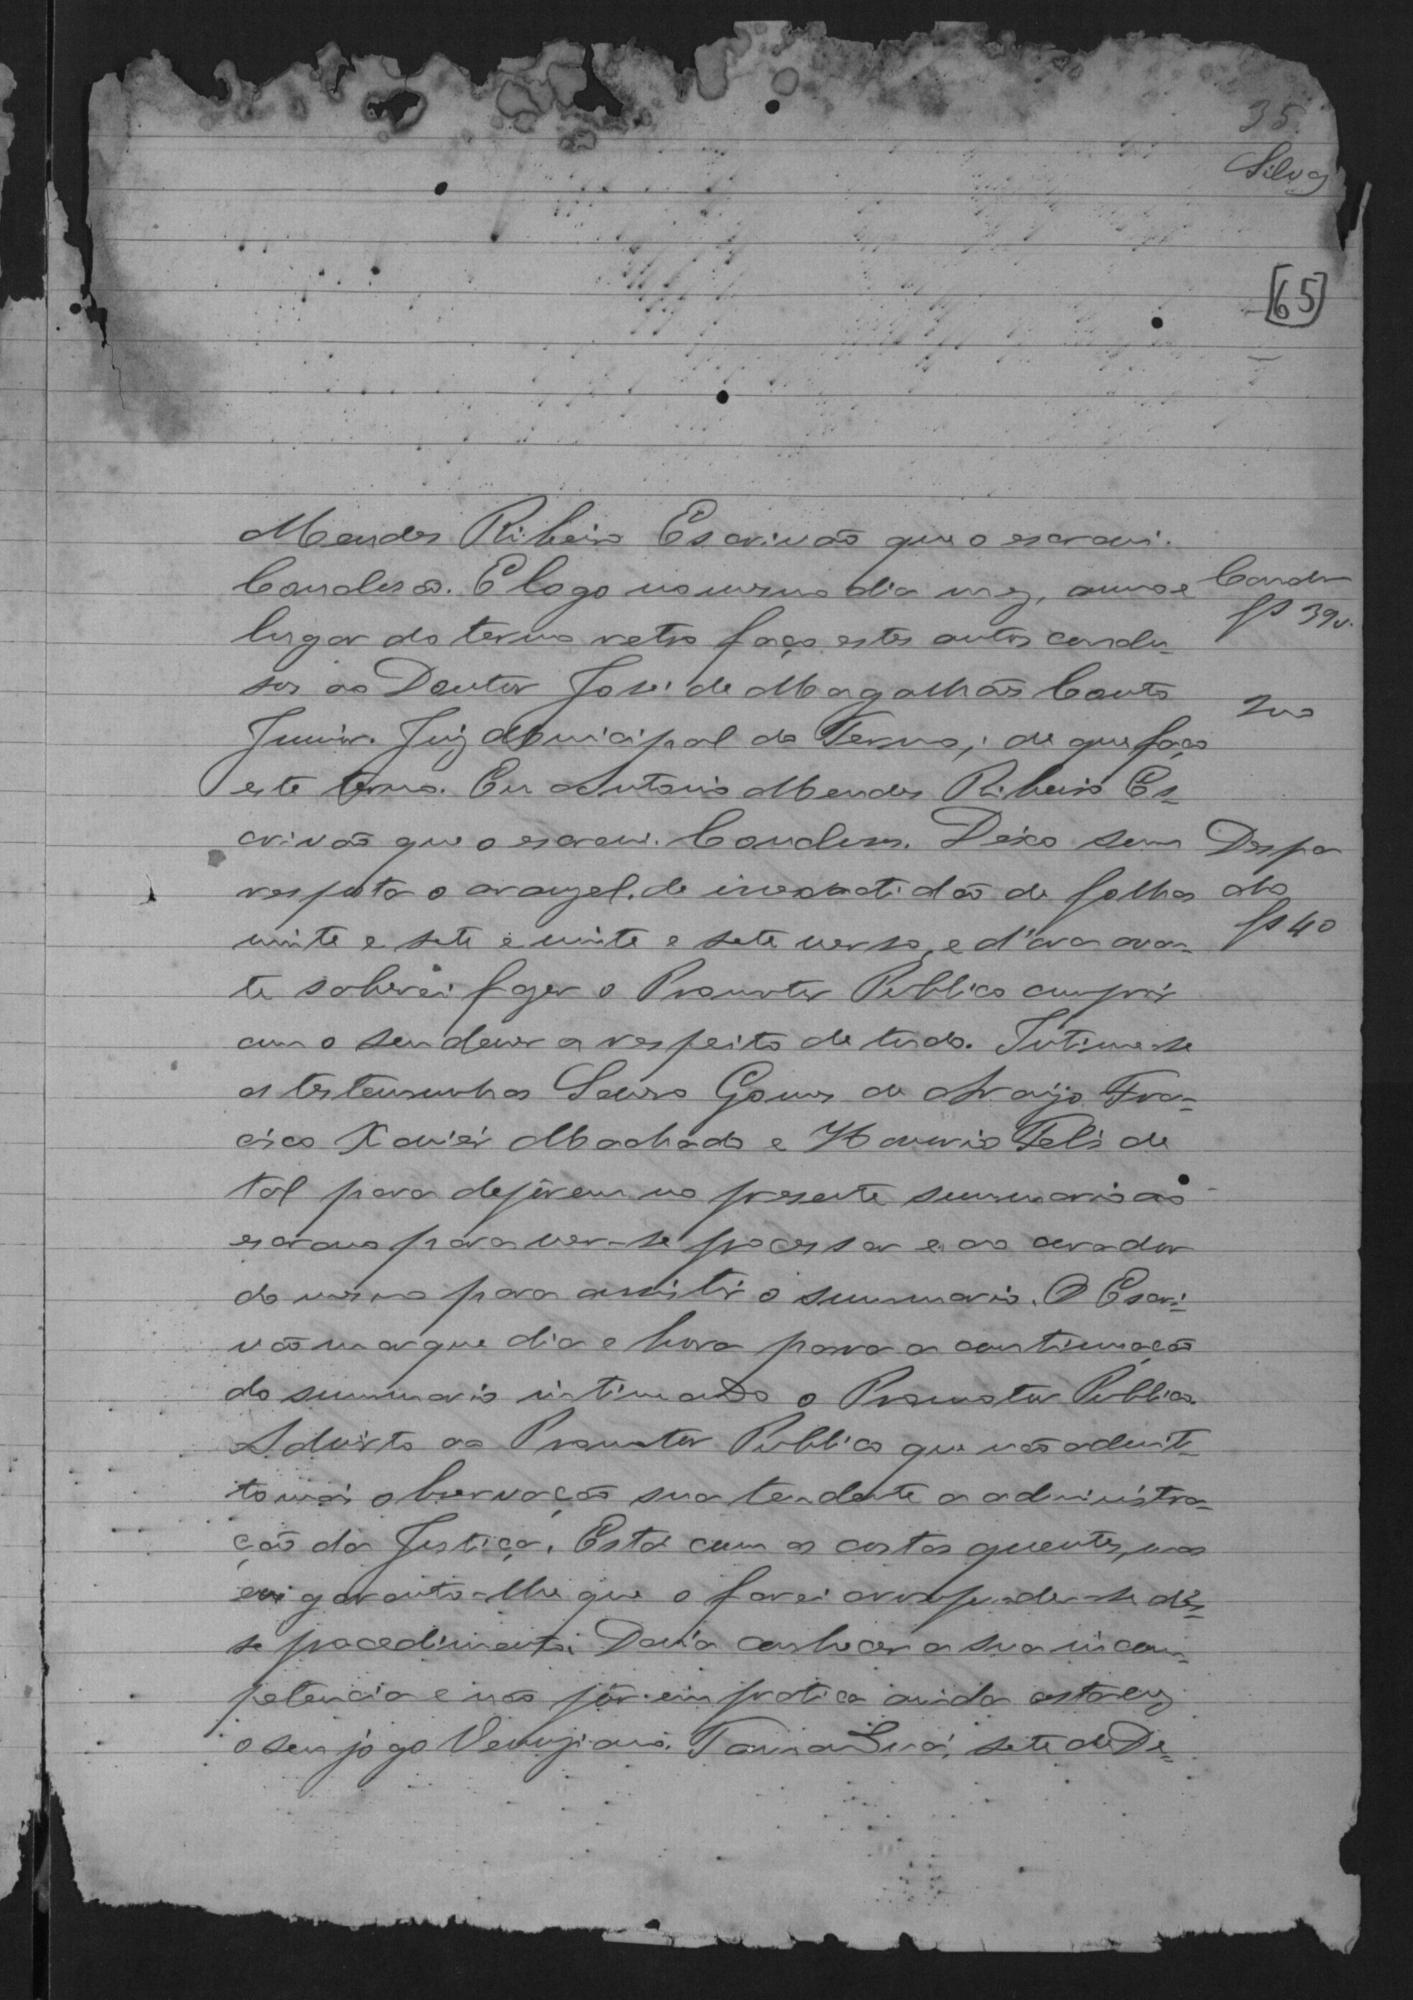 35
Silva
[65]
Mendes Ribeiro Escrivão que o escrevi.
Conclusão. E logo no mesmo dia mez, anno e
Conclu
fs 39v.
lugar do termo retro faço estes autos conclu-
sos ao Doutor José de Magalhães Couto
Junior. Juiz Municipal do Termo; de que faço
este termo. Eu Antonio Mendes Ribeiro Es-
crivão que o escrevi. Conclusos. Deixo sem
Despa
cho
fs 40
resposta o aranzel de inexactidão de folhas
vinte e sete e vinte e sete verso, e d'ora avan-
te saberei fazer o Promotor Publico cumprir
com o seu dever a respeito de tudo. Intime-se
as testemunhas Lauro Gomes de Araujo Fran-
cisco Xavier Machado e Honorio Felis de
tal para depôrem no presente summario ao
escravo para ver-se processar e ao curador
do mesmo para assistir o summario. O Escri-
vão marque dia e hora para a continuação
do summario intimando o Promotor Publico.
Advirto ao Promotor Publico que não admit-
to mais observação sua tendente a administra-
ção da Justiça. Está com as costas quentes, mas
eu garanto-lhe que o farei arrepender-se dês-
se procedimento. Devia conhecer a sua incom-
petencia e não pôr em pratica ainda esta vez
o seu jogo sete de De-